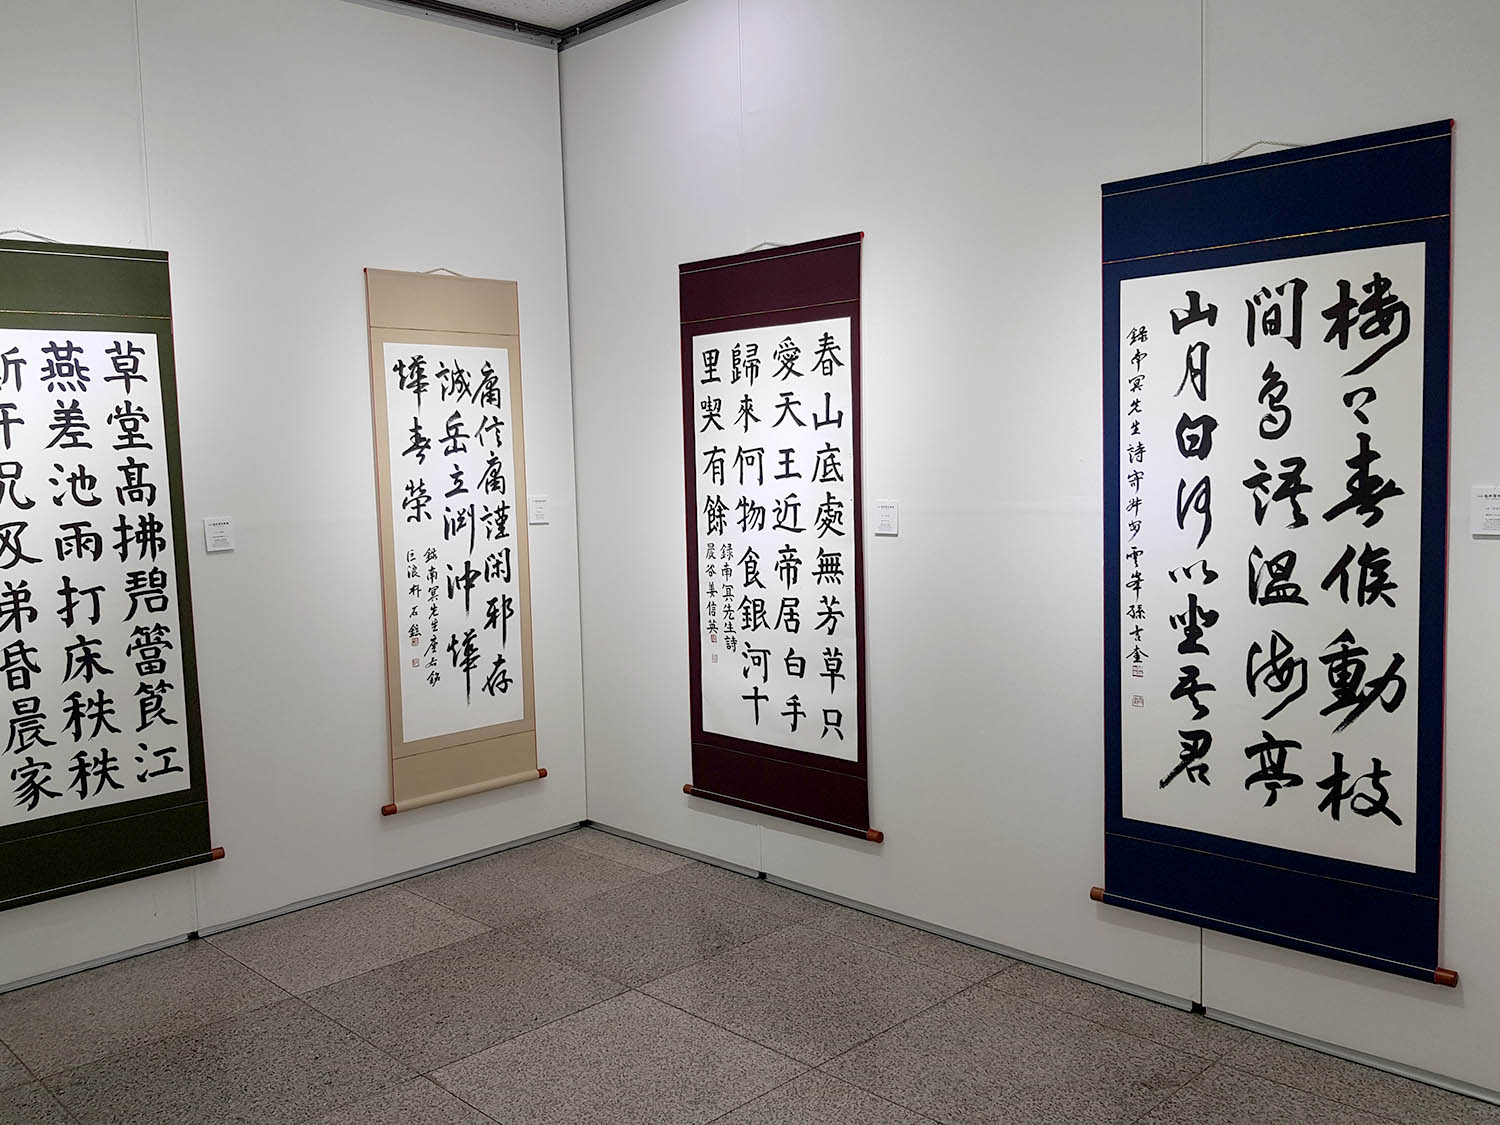 楼春候動枝
間鳥語溫海亭
山月白何以坐吾君
錄南冥先生詩 雲峯孫吉奎
春山底處無芳草只
愛天王近帝居白手
歸來何物食銀河十
里喫有餘
録南冥先生詩
晨谷姜信英
庸信庸謹閑邪存
誠岳立渊冲燁
燁春榮
錄南冥先生座右銘
巨浪朴石
草堂高拂碧簹筤江
燕差池雨打床秩秩
斯干兄及弟昏晨家